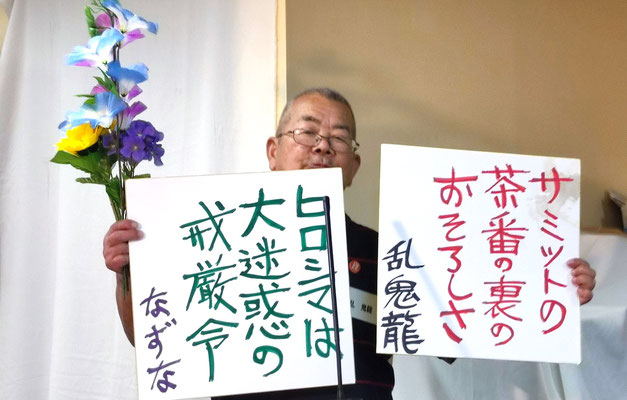 サミットの
茶番の裏の
おそろしさ
乱鬼龍
ヒロシマは
大迷惑の
戒厳令
なずな